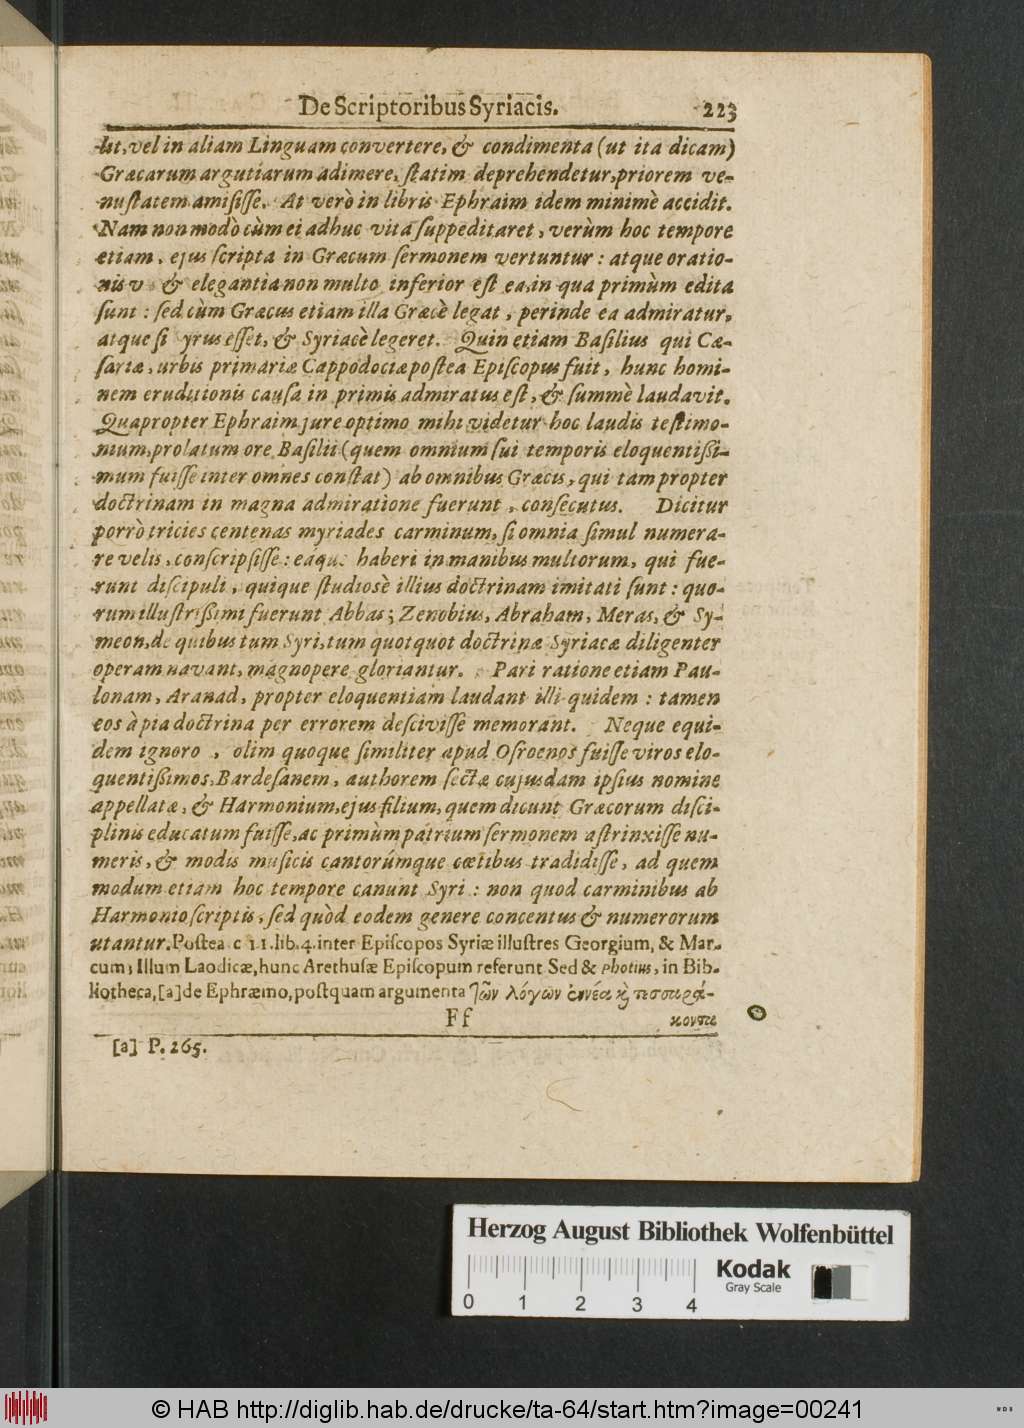 De Scriptoribus Syriacis. 223
lit, vel in aliam Linguam convertere, & condimenta (ut ita dicam)
Græcarum argutiarum adimere, ſtatim deprehendetur, priorem ve-
nuſtatem amiſiſſe. At verò in libris Ephraim idem minimè accidit.
Nam non modò cùm ei adhuc vita ſuppeditaret, verùm hoc tempore
etiam, ejus ſcripta in Græcum ſermonem vertuntur: atque oratio-
nis v & elegantia non multo inferior eſt ea, in qua primùm edita
ſunt: ſed cùm Græcus etiam illa Græcè legat, perinde ea admiratur,
atque ſi yrus eſſet, & Syriacè legeret. Quin etiam Baſilius qui Cæ-
ſariæ, urbis primariæ Cappodociæ poſtea Epiſcopus fuit, hunc homi-
nem eruditionis cauſa in primis admiratus eſt, & ſummè laudavit.
Quapropter Ephraim jure optimo mihi videtur hoc laudis teſtimo-
nium, prolatum ore Baſilii (quem omnium ſui temporis eloquentiſſi-
mum fuiſſe inter omnes conſtat) ab omnibus Græcis, qui tam propter
doctrinam in magna admiratione fuerunt, conſecutus. Dicitur
porrò tricies centenas myriades carminum, ſi omnia ſimul numera-
re velis, conſcripſiſſe: eaque haberi in manibus multorum, qui fue-
runt diſcipuli, quique ſtudiosè illius doctrinam imitati ſunt: quo-
rum illuſtriſſimi fuerunt Abbas; Zenobius, Abraham, Meras, & Sy-
meon, de quibus tum Syri, tum quotquot doctrinæ Syriacæ diligenter
operam navant, magnopere gloriantur. Pari ratione etiam Pau-
lonam, Aranad, propter eloquentiam laudant illi quidem: tamen
eos à pia doctrina per errorem deſciviſſe memorant. Neque equi-
dem ignoro, olim quoque ſimiliter apud Oſroenos fuiſſe viros elo-
quentiſſimos, Bardeſanem, authorem ſectæ cujusdam ipſius nomine
appellatæ, & Harmonium, ejus filium, quem dicunt Græcorum diſci-
plinis educatum fuiſſe, ac primùm patrium ſermonem aſtrinxiſſe nu-
meris, & modis muſicis cantorúmque cœtibus tradidiſſe, ad quem
modum etiam hoc tempore canunt Syri: non quod carminibus ab
Harmonio ſcriptis, ſed quòd eodem genere concentus & numerorum
utantur. Poſtea c 11. lib. 4. inter Epiſcopos Syriæ illuſtres Georgium, & Mar-
cum, Illum Laodicæ, hunc Arethuſæ Epiſcopum referunt Sed & Photius, in Bib-
liotheca, [a] de Ephræmo, poſtquam argumenta τῶν λόγων ἐννέα κὶ τεσσαρά-
Ff κοντα
[a] P. 265.
Herzog August Bibliothek Wolfenbüttel
0 1 2 3 4
Kodak
Gray Scale
© HAB http://diglib.hab.de/drucke/ta-64/start.htm?image=00241